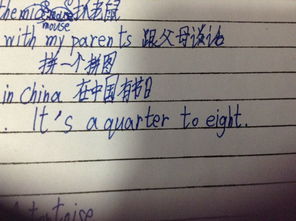 themice mouse 抓老鼠
with my parents 跟父母谈论
拼一个拼图
in China 在中国有节日
. It's a quarter to eight.
tortoise